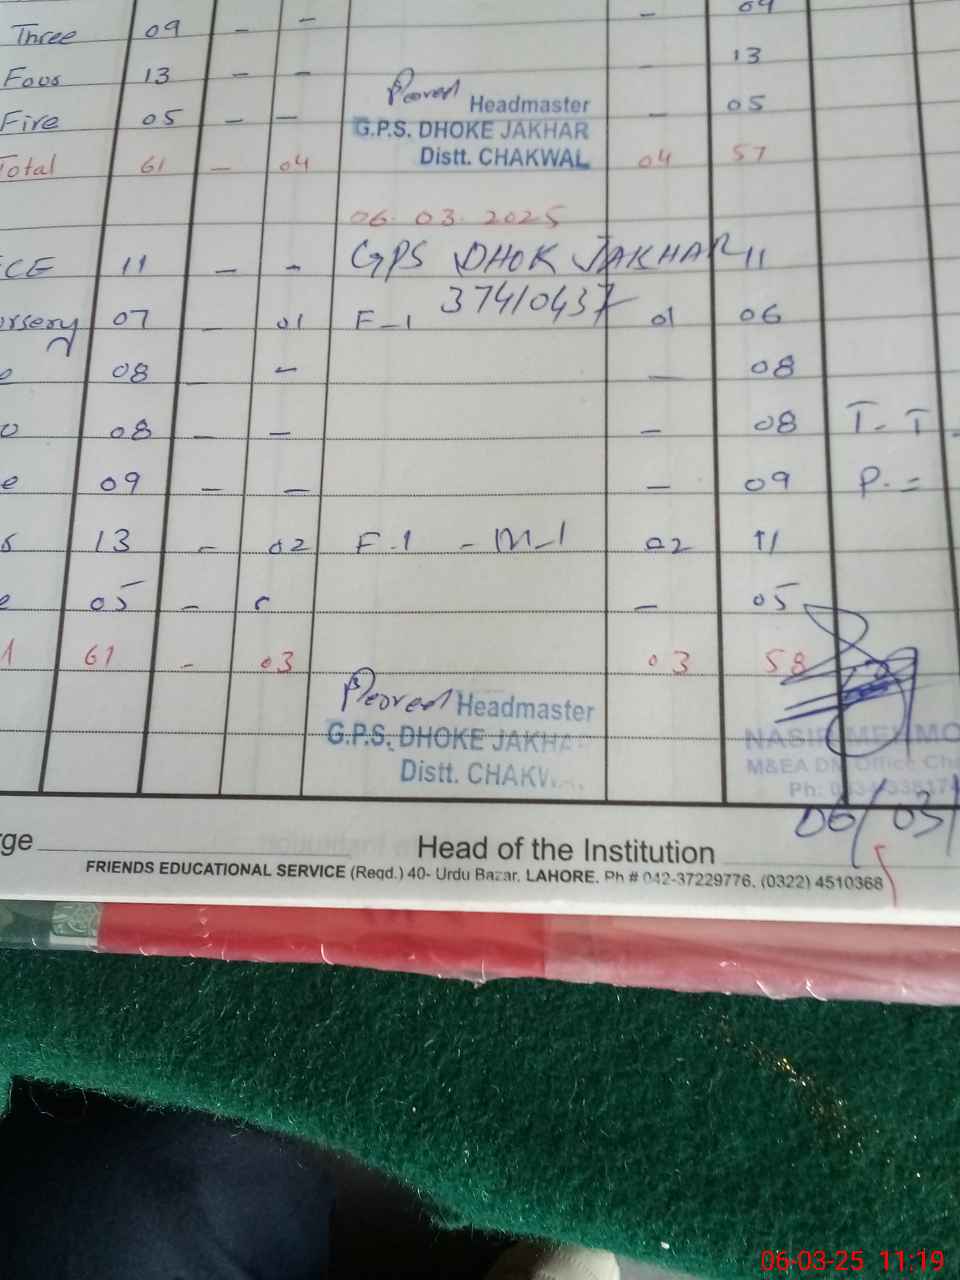 Three 09 - - - 09
Four 13 - - - 13
Five 05 - - - 05
Headmaster
G.P.S. DHOKE JAKHAR
Distt. CHAKWAL
Total 61 - 04 04 57
06.03.2025
CE 11 - - GPS DHOK JAKHAR 11
37410437
ursery 07 - 01 F-1 01 06
e 08 - - - 08
o 08 - - - 08 T-T
e 09 - - - 09 P-=
s 13 - 02 F-1 - M-1 02 11
e 05 - - 05
61 - 03 03 58
Headmaster
G.P.S. DHOKE JAKHA
Distt. CHAKW
M&EA Office
Ph:
06/03/
rge Head of the Institution
FRIENDS EDUCATIONAL SERVICE (Regd.) 40- Urdu Bazar, LAHORE. Ph # 042-37229776, (0322) 4510368
06-03-25 11:19